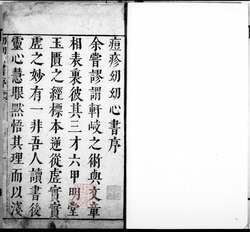 痘疹幼幼心書序
余嘗謬謂軒岐之術與文章
相表裏彼其三才六甲明堂
玉匱之經標本逆從虛實實
虛之妙有一非吾人讀書後
靈心慧眼黙悟其理而以淺